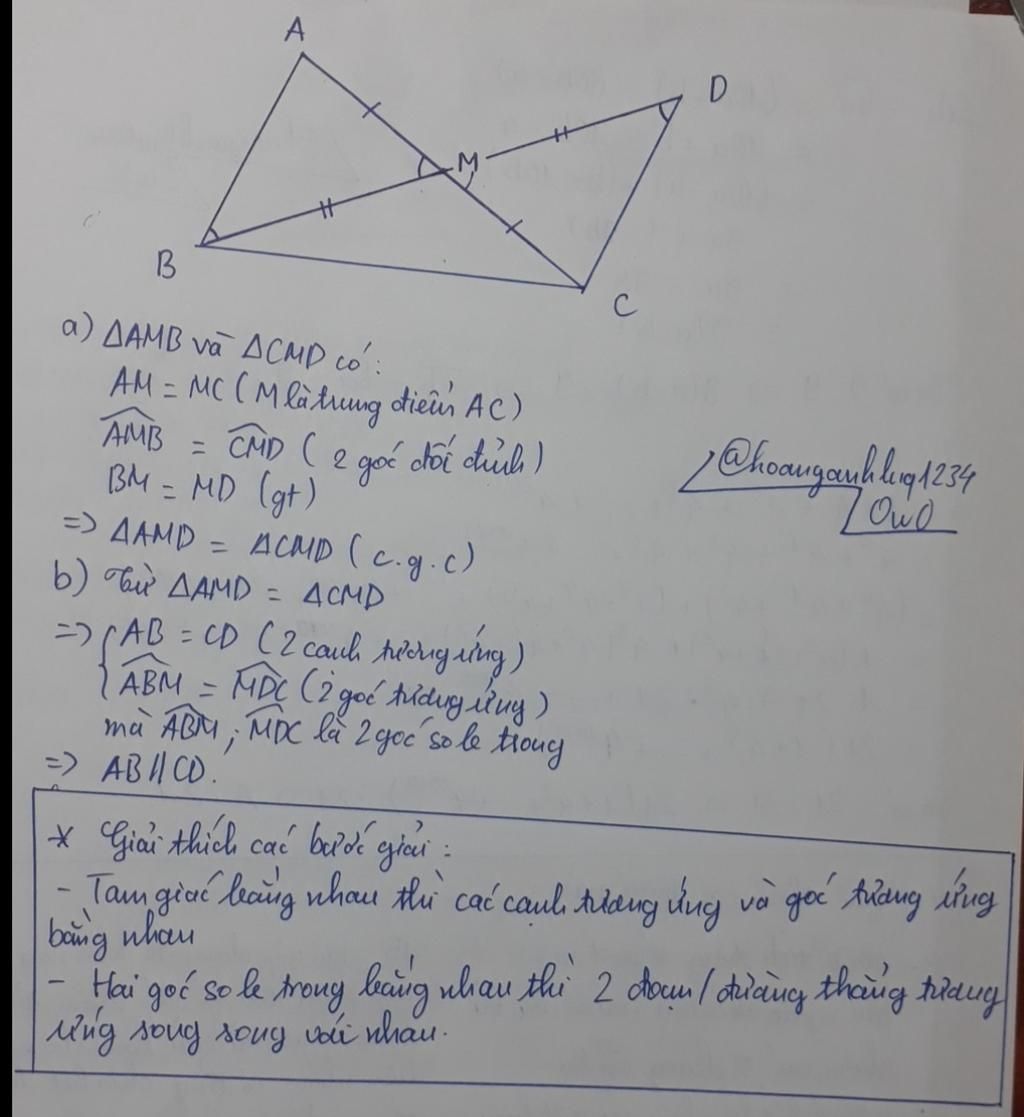 A
D
M
B
C
a) ΔAMB và ΔCMD có:
AM = MC (M là trung điểm AC)
\widehat{AMB} = \widehat{CMD} (2 góc đối đỉnh)
BM = MD (gt)
=> ΔAMD = ΔCMD (c.g.c)
@hoanganhluq1234
OwO
b) Từ ΔAMD = ΔCMD
=> { AB = CD (2 cạnh tương ứng)
\widehat{ABM} = \widehat{MDC} (2 góc tương ứng)
mà \widehat{ABM} ; \widehat{MDC} là 2 góc so le trong
=> AB // CD.
* Giải thích các bước giải :
- Tam giác bằng nhau thì các cạnh tương ứng và góc tương ứng
bằng nhau
- Hai góc so le trong bằng nhau thì 2 đoạn / đường thẳng tương
ứng song song với nhau.